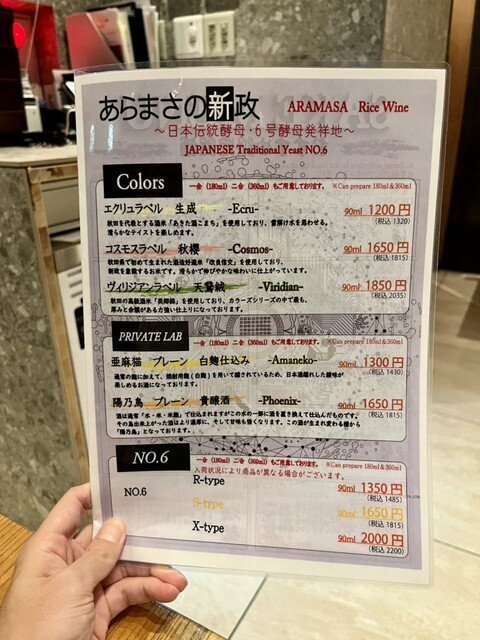 あらまさの新政 ARAMASA Rice Wine
～日本伝統酵母・6号酵母発祥地～
JAPANESE Traditional Yeast NO.6
Colors 一合(180ml)二合(360ml)もご用意しております。 ※Can prepare 180ml&360ml
エクリュラベル 生成 -Ecru- 90ml 1200円
秋田を代表とする酒米「あきた酒こまち」を使用しており、雪解け水を思わせる。 (税込1320)
滑らかなテイストを楽しめます。
コスモスラベル 秋櫻 -Cosmos- 90ml 1650円
秋田県で初めて生まれた酒造好適米「改良信交」を使用しており、 (税込1815)
新政を象徴するお米です。滑らかで伸びやかな味わいに仕上がっています。
ヴィリジアンラベル 天鵞絨 -Viridian- 90ml 1850円
秋田の高級酒米「美郷錦」を使用しており、カラーズシリーズの中で最も、 (税込2035)
厚みと余韻がある力強い仕上りになっております。
PRIVATE LAB 一合(180ml)二合(360ml)もご用意しております。 ※Can prepare 180ml&360ml
亜麻猫 プレーン 白麹仕込み -Amaneko- 90ml 1300円
通常の麹に加えて、焼酎用麹(白麹)を用いて醸されているため、日本酒離れした酸味が (税込1430)
楽しめるお酒になっております。
陽乃鳥 プレーン 貴醸酒 -Phoenix- 90ml 1650円
酒は通常「水・米・米麹」で仕込まれますがこの水の一部に酒を置き換えて仕込んだものです。 (税込1815)
その為出来上がった酒はより濃厚に、そして甘味も強くなります。この酒が生まれ変わる様から
「陽乃鳥」となっております。
NO.6 一合(180ml)二合(360ml)もご用意しております。 ※Can prepare 180ml&360ml
入荷状況により商品が異なる場合がございます。
NO.6 R-type 90ml 1350円
(税込1485)
S-type 90ml 1650円
(税込1815)
X-type 90ml 2000円
(税込2200)